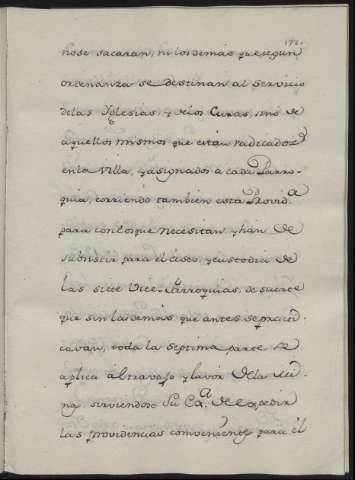 no se sacarán, ni los demás que según
ordenanza se destinan al servicio
delas Yglesias, y delos Curas, sino de
aquellos mismos que están radicados
enla Villa, y asignados à cada Parro-
quia, corriendo tambien esta Provid.a
para conlos que necesitan, y han de
subsistir para el aseo, y custodia de
las siete Vice-Parroquias, de suerte
que sin las demás que antes se practi-
cavan, toda la septima parte se
aplica al travajo, y lavor dela Mi-
na, sirviendose Su Ex.a de expedir
las providencias conveniente para el